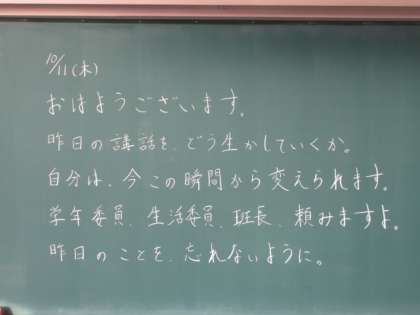 10/11(木)
おはようございます。
昨日の講話を、どう生かしていくか。
自分は、今この瞬間から変えられます。
学年委員、生活委員、班長、頼みますよ。
昨日のことを、忘れないように。